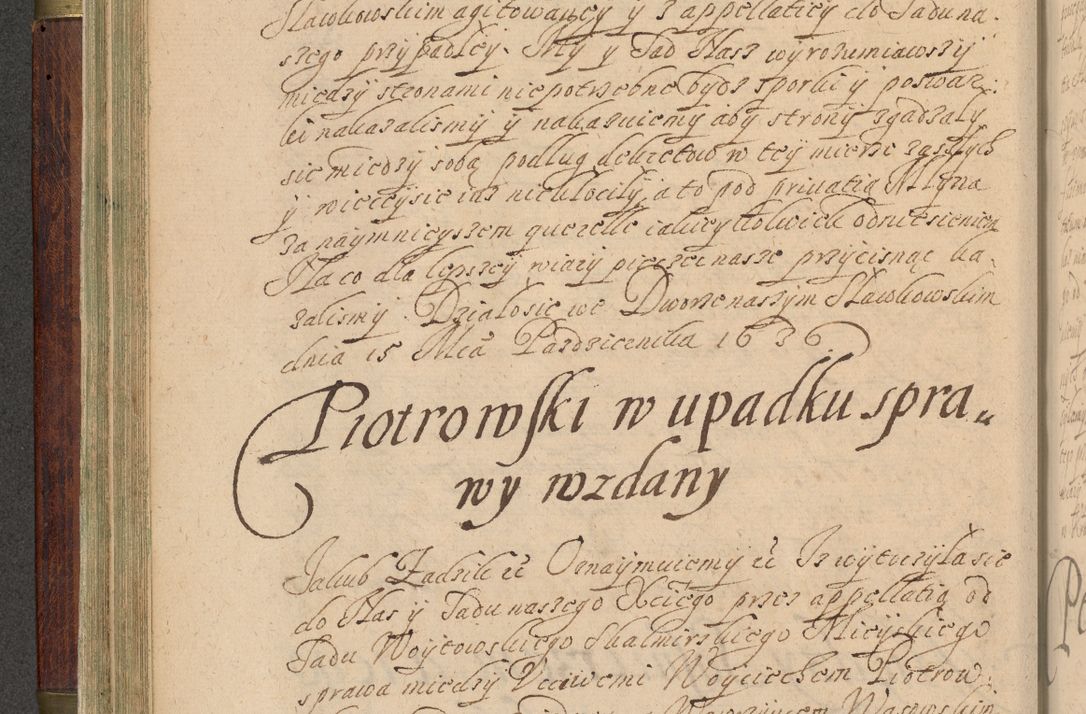 Sławkowskim agitowaney y z appellatiey do Sądu na-
szego przypadłey. My y Sąd Nasz wyrozumiawszy
między stronami niepotrzebne bydź sporki y poswar-
ki nakazalismy y nakazuiemy aby strony zgadzały
się między sobą podług dekretow w tey mierze zaszłych
y więceysie iuż niekłociły, a to pod priuatią Młyna
za naymnieyszem querelle iakieykolwiek odniesieniem
Na co dla lepszey wiary pieczęć nasze przycisnąc ka-
zalismy. Działosie we Dworze naszym Sławkowskim
dnia 15 Mca Pazdziernika 1636
Piotrowski w upadku spra„
wy wzdany
Jakub Zadzik etc Oznaymuiemy etc Iż wytoczyła sie
do Nas y Sądu naszego Xcięgo przez appellatią od
Sądu Woytowskiego Skalmirskiego Mieyskiego
sprawa między Vcciwemi Woyciechem Piotrow-